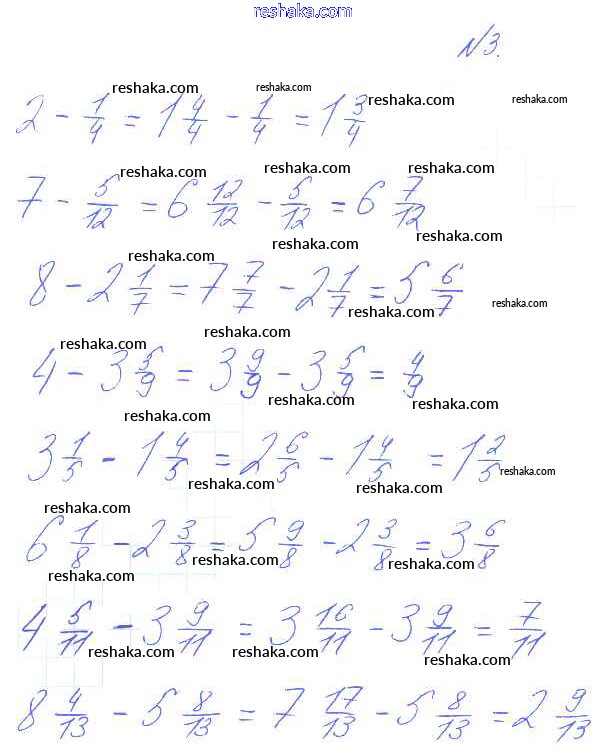 reshaka.com
N3.
reshaka.com reshaka.com reshaka.com
2 - 1/4 = 1 4/4 - 1/4 = 1 3/4
reshaka.com reshaka.com reshaka.com
7 - 5/12 = 6 12/12 - 5/12 = 6 7/12
reshaka.com reshaka.com
reshaka.com
8 - 2 1/7 = 7 7/7 - 2 1/7 = 5 6/7
reshaka.com
reshaka.com
reshaka.com reshaka.com
4 - 3 5/9 = 3 9/9 - 3 5/9 = 4/9
reshaka.com reshaka.com
reshaka.com
3 1/5 - 1 4/5 = 2 6/5 - 1 4/5 = 1 2/5
reshaka.com
reshaka.com reshaka.com
reshaka.com
6 1/8 - 2 3/8 = 5 9/8 - 2 3/8 = 3 6/8
reshaka.com
reshaka.com reshaka.com
4 5/11 - 3 9/11 = 3 16/11 - 3 9/11 = 7/11
reshaka.com reshaka.com reshaka.com
8 4/13 - 5 8/13 = 7 17/13 - 5 8/13 = 2 9/13